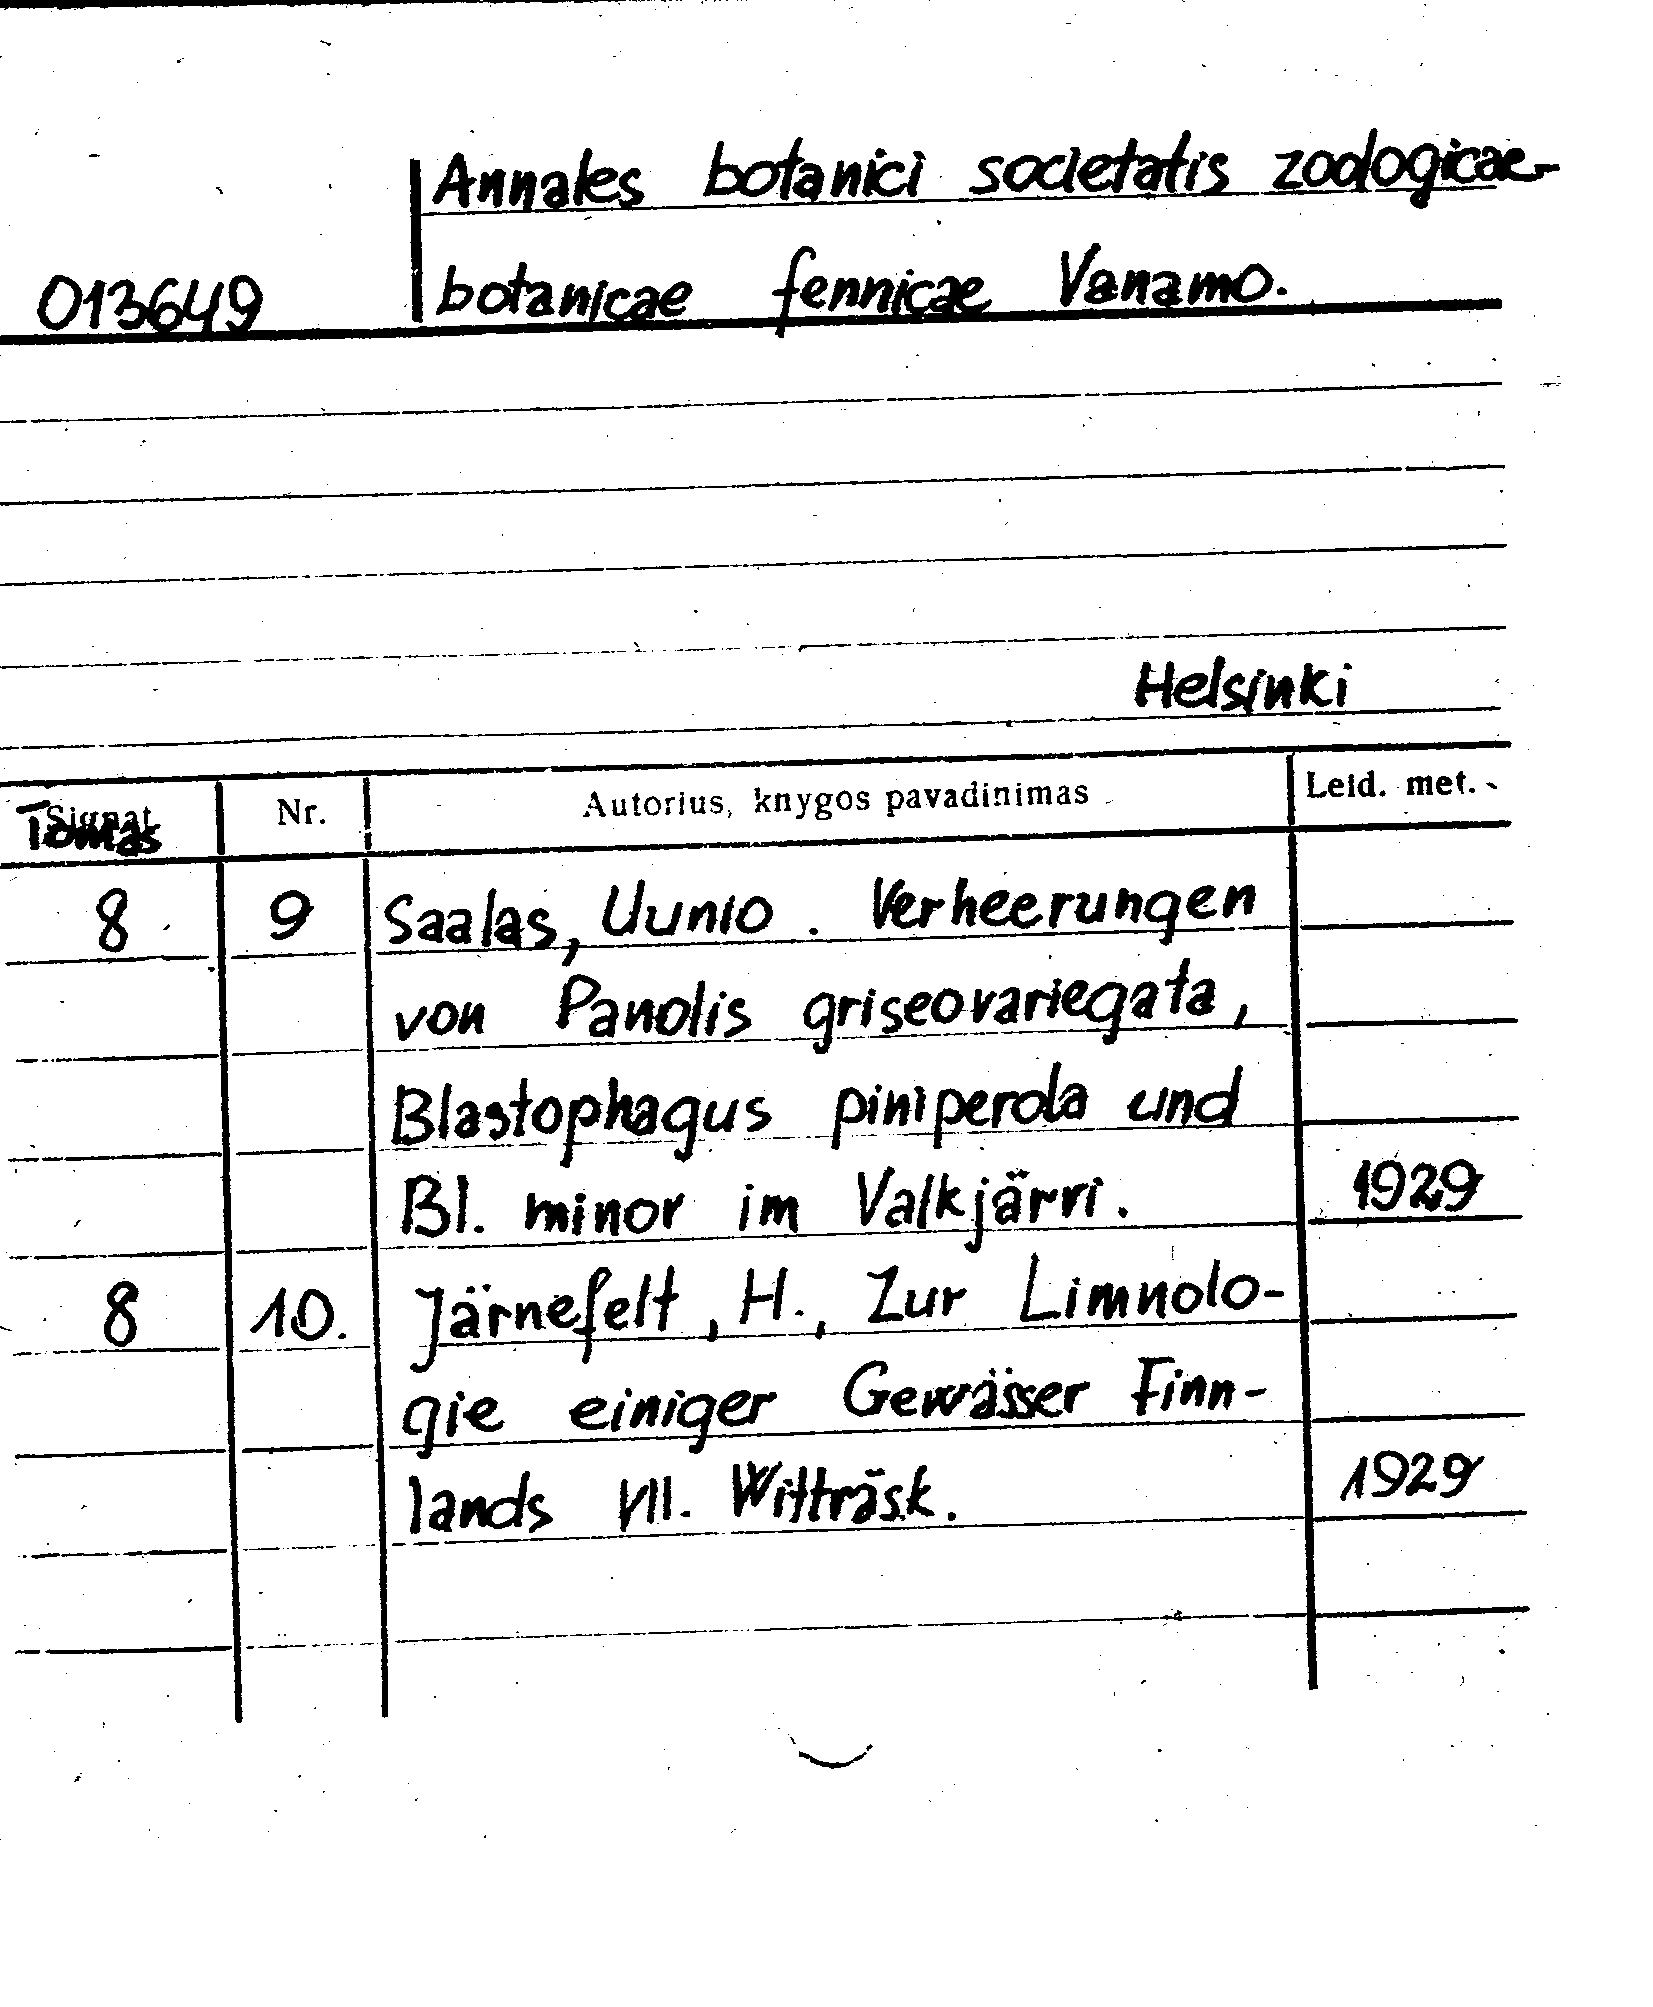 Annales botanici societatis zoologicae-
013649 botanicae fennicae Vanamo.
Helsinki
Tomas Nr. Autorius, knygos pavadinimas Leid. met.
8 9 Saalas, Uunio. Verheerungen
von Panolis griseovariegata,
Blastophagus piniperda und
Bl. minor im Valkjärvi. 1929
8 10. Järnefelt, H., Zur Limnolo-
gie einiger Gewässer Finn-
lands VII. Witträsk. 1929